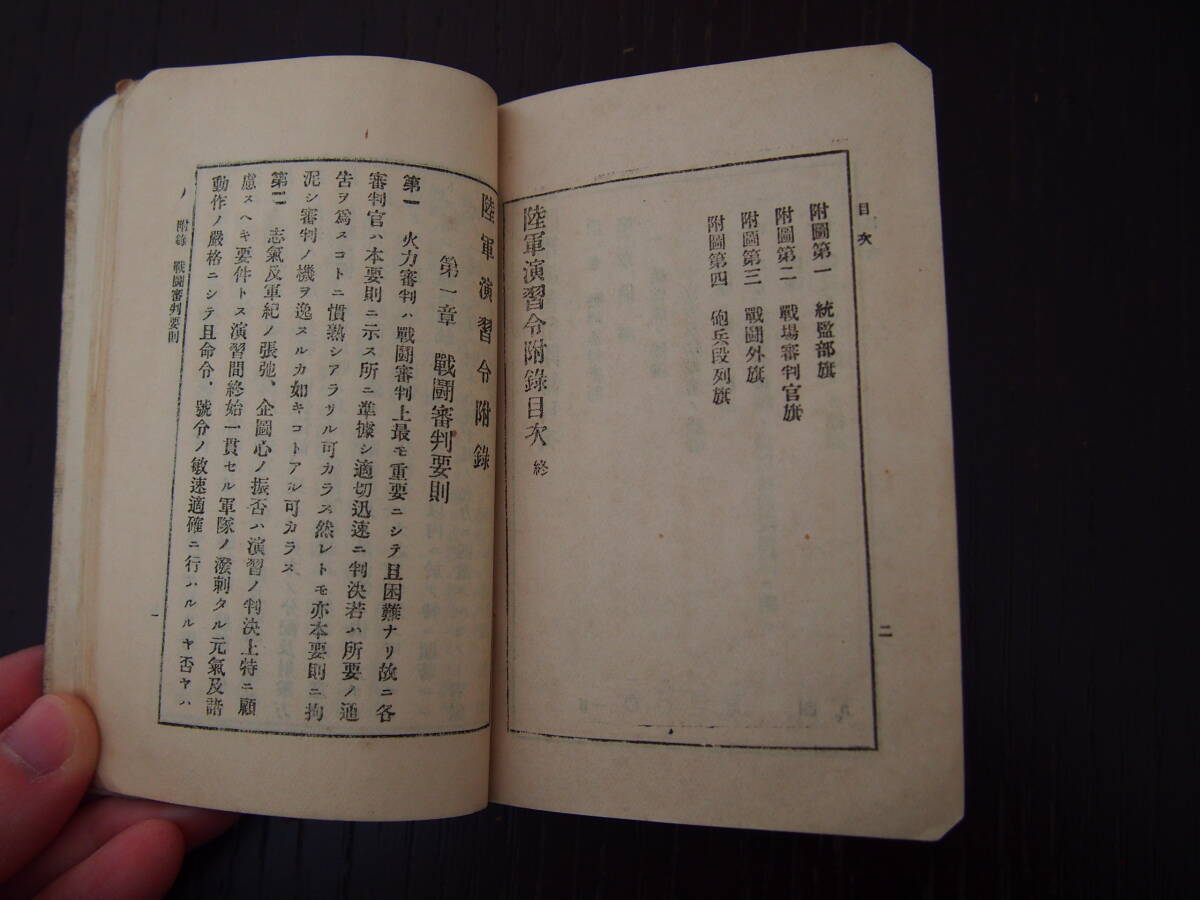 目次
附圖第一 統監部旗
附圖第二 戰場審判官旗
附圖第三 戰鬪外旗
附圖第四 砲兵段列旗
陸軍演習令附錄目次 終
二
陸軍演習令附錄
第一章 戰鬪審判要則
第一 火力審判ハ戰鬪審判上最モ重要ニシテ且困難ナリ故ニ各
審判官ハ本要則ニ示ス所ニ準據シ適切迅速ニ判決若ハ所要ノ通
告ヲ爲スコトニ慣熟シアラサル可カラス然レトモ亦本要則ニ拘
泥シ審判ノ機ヲ逸スルカ如キコトアル可カラス
第二 志氣及軍紀ノ張弛、企圖心ノ振否ハ演習ノ判決上特ニ顧
慮スヘキ要件トス演習間終始一貫セル軍隊ノ潑剌タル元氣及諸
動作ノ嚴格ニシテ且命令、號令ノ敏速適確ニ行ハルルヤ否ヤハ
附錄 戰鬪審判要則
一